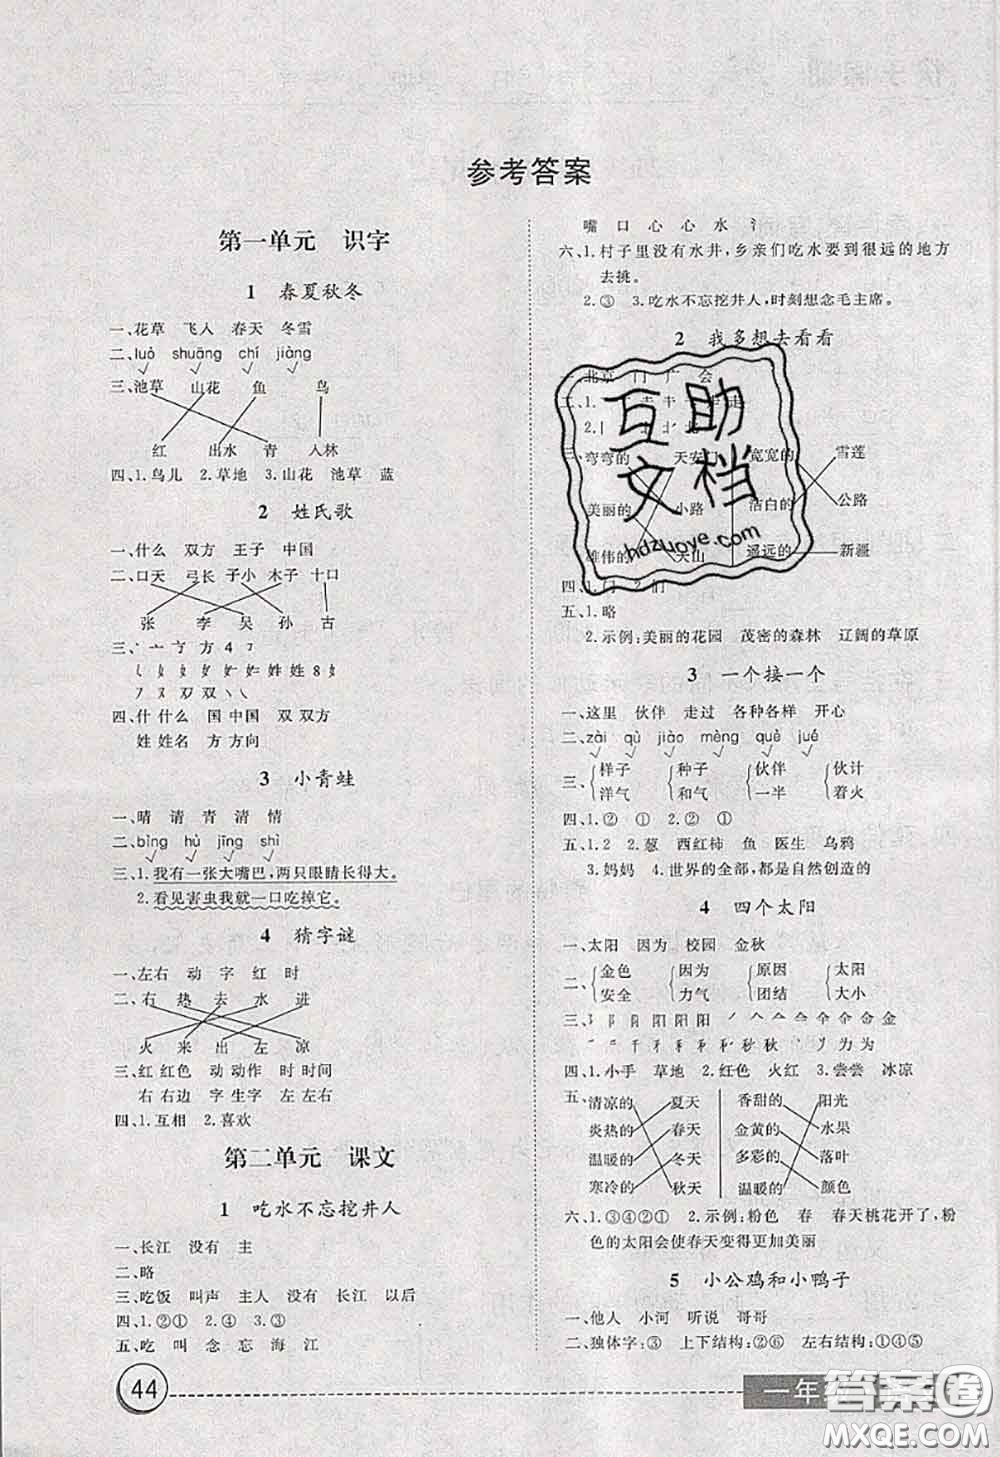 参考答案
第一单元 识字
1 春夏秋冬
一、花草 飞人 春天 冬雪
二、luò shuāng chí jiàng
√ √ √ √
三、池草 山花 鱼 鸟
红 出水 青 入林
四、1.鸟儿 2.草地 3.山花 池草 蓝
2 姓氏歌
一、什么 双方 王子 中国
二、口天 弓长 子小 木子 十口
张 李 吴 孙 古
方 4
姓 姓 8
双 双
四、什 什么 国 中国 双 双方
姓 姓名 方 方向
3 小青蛙
一、晴 请 青 清 情
二、bìng hù jīng shì
√ √ √ √
三、1.我有一张大嘴巴,两只眼睛长得大。
2.看见害虫我就一口吃掉它。
4 猜字谜
一、左右 动 字 红 时
二、右 热 去 水 进
火 来 出 左 凉
三、红 红色 动 动作 时 时间
右 右边 字 生字 左 左右
四、1.互相 2.喜欢
第二单元 课文
1 吃水不忘挖井人
一、长江 没有 主
二、略
三、吃饭 叫声 主人 没有 长江 以后
四、1.②① 2.④ 3.③
五、吃 叫 念 忘 海 江
嘴 口 心 心 水 氵
六、1.村子里没有水井,乡亲们吃水要到很远的地方
去挑。
2.③ 3.吃水不忘挖井人,时刻想念毛主席。
2 我多想去看看
北京 门 广 会
二、1.
走
2.
北
三、弯弯的 天安门 宽宽的 雪莲
美丽的 小路 洁白的 公路
雄伟的 天山 遥远的 新疆
四、1.门 2.们
五、1.略
2.示例:美丽的花园 茂密的森林 辽阔的草原
3 一个接一个
一、这里 伙伴 走过 各种各样 开心
二、zài qù jiào mèng què jué
√ √ √ √ √ √
三、样子 种子 伙伴 伙计
洋气 和气 一半 着火
四、1.② ① 2.② ①
五、1.2 2.葱 西红柿 鱼 医生 乌鸦
3.妈妈 4.世界的全部,都是自然创造的
4 四个太阳
一、太阳 因为 校园 金秋
二、金色 因为 原因 太阳
安全 力气 团结 大小
三、
阳 金
秋 为
四、1.小手 草地 2.红色 火红 3.尝尝 冰凉
五、清凉的 夏天 香甜的 阳光
炎热的 春天 金黄的 水果
温暖的 冬天 多彩的 落叶
寒冷的 秋天 温暖的 颜色
六、1.③④②① 2.示例:粉色 春 春天桃花开了,粉
色的太阳会使春天变得更加美丽
5 小公鸡和小鸭子
一、他人 小河 听说 哥哥
二、独体字:③ 上下结构:②⑥ 左右结构:①④⑤
44
一年级
互助
文档
hdzuoye.com
答案圈
MXQE.COM